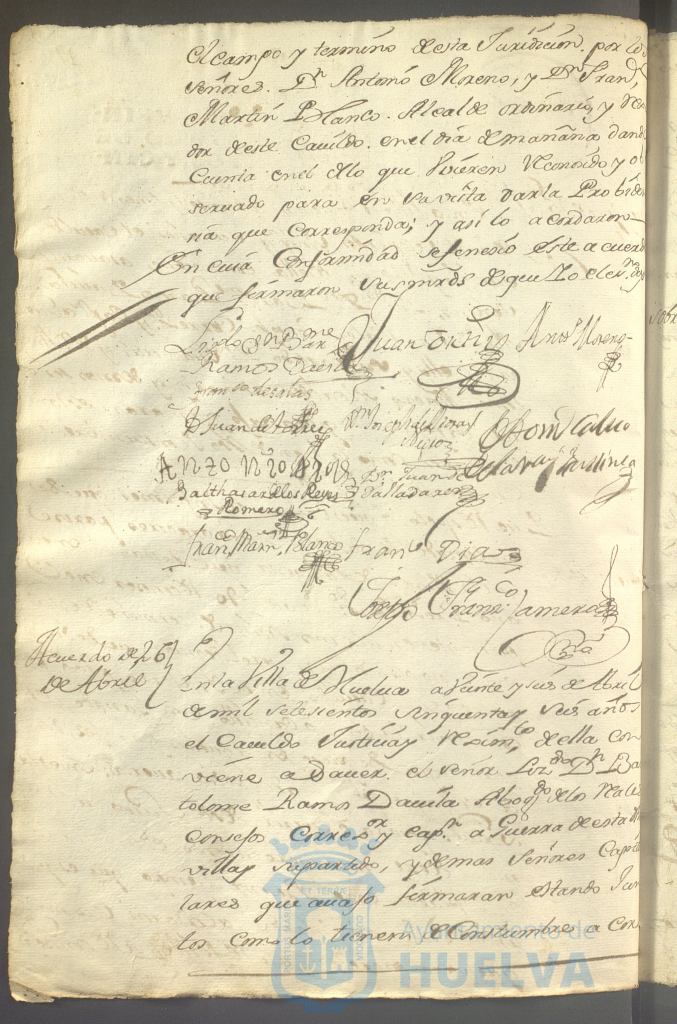 el campo y termino de esta Juridicion. por los
señores. Dn Antonio Moreno, y Dn Fran,
Martin Blanco. Alcalde ordinario, y
dor de este Cavildo. en el dia de mañana dan
Cuenta en el de lo que huvieren reconosido y ob
servado para en su vista darla Probiden
sia que Corresponda; y asi lo acordaron
En cuia Conformidad se fenesio este acuerdo
que firmaron sus mrds de que Io el es.no doy
Lizdo Dn Bme
Ramos Davila
Juan Ortiz
Anto Moreno
Dn Juan de Torres
Dn Joseph de
Balthasar de los Reyes
Romero
Dn Juan de
Valladares
Franco Marn Blanco
Franco Diaz
Franco Camero
Acuerdo de 26
de Abril
En la Villa de Huelva a veinte y seis de Abril
de mil setesientos sinquenta y seis años
el Cavildo Justicia y Reximto de ella con
viene a saver. el señor Lizdo Dn Bar
tolome Ramos Davila Abogdo de los Reales
Consejos Corregor y Capn a Guerra de esta dha
villa y su partido, y demas señores Capitu
lares que avajo firmaran estando Jun
tos como lo tienen de Constumbre a Con
Ayuntamiento de
HUELVA